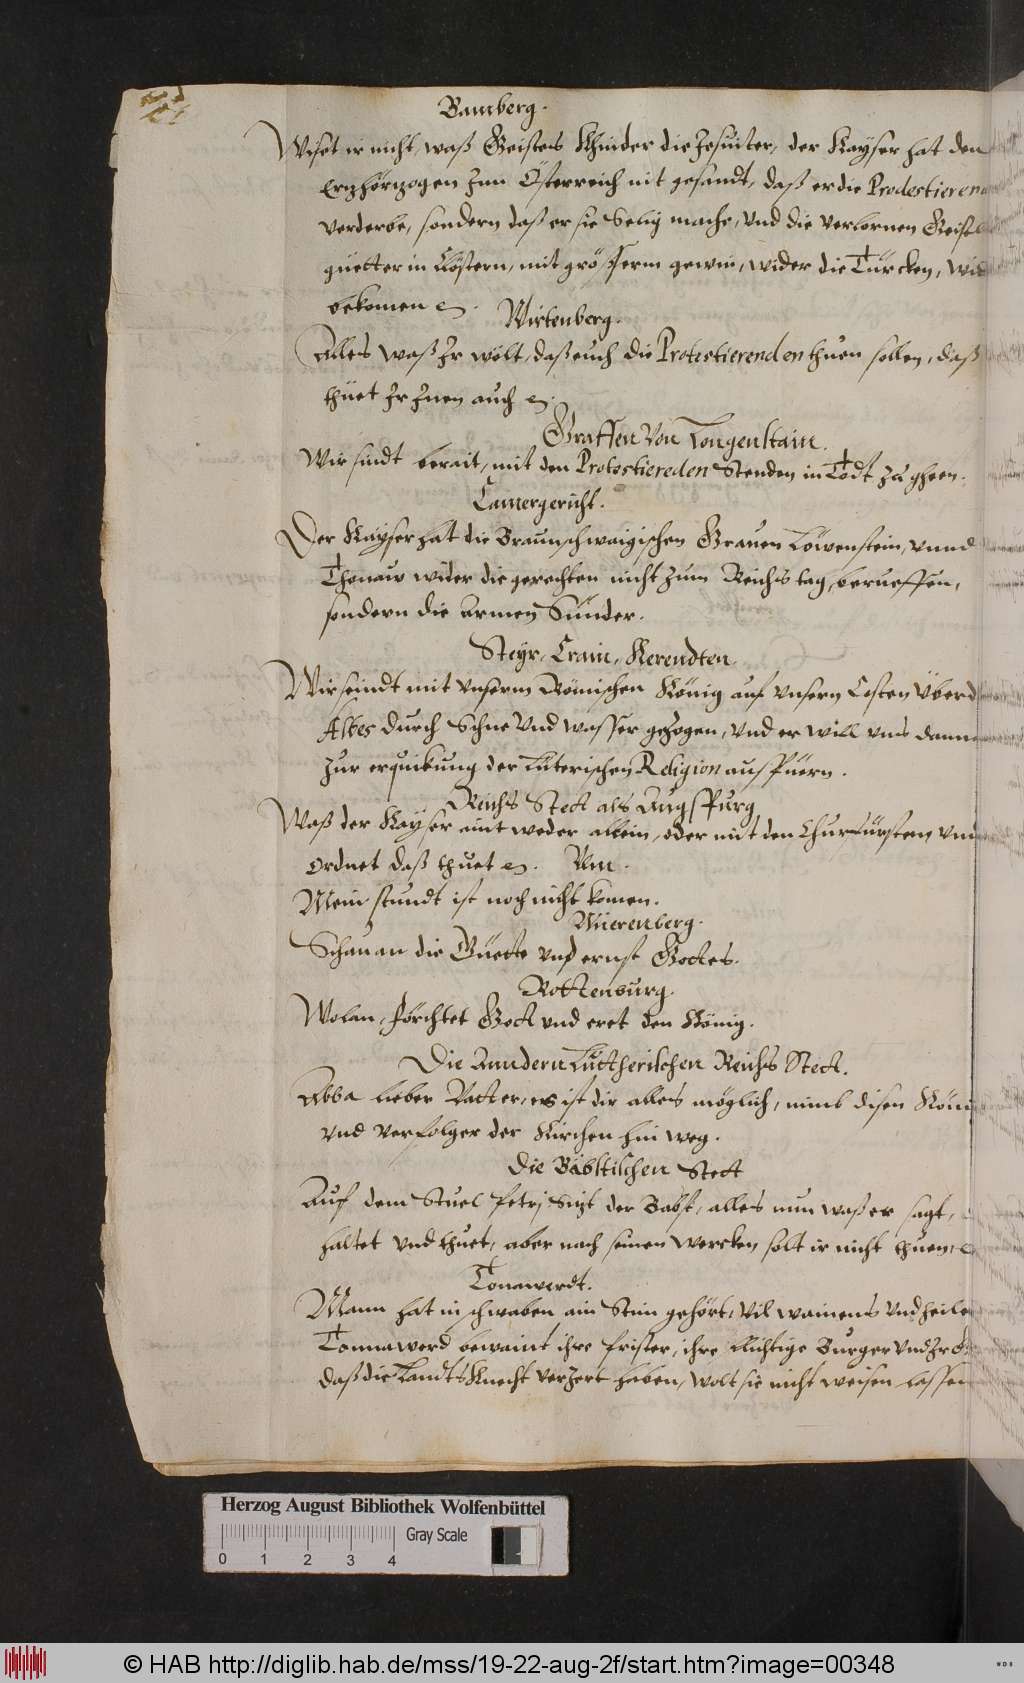 Bamberg.
Wiset ir nicht, waß Geistes Khinder die Jesuiter, der Kayser hat den
Erzhörzogen Inn Österreich nit gesandt, daß er die Prodestierend
verderbe, sondern daß er sie Selig mache, Und die verlornen Geistl
guetter in Clöstern, mit grösserm gewin, wider die Türcken, wid
bekomen
Wirtenberg.
Alles waß Ir wölt, daß euch die Protestierenden thuen sollen, daß
thuet Ir Inen auch
Graffen Von
Wir sindt berait, mit den Protestiereden Stenden in Todt zu gheen.
Camergericht.
Der Kayser hat die Braunschwaigischen Grauen Löwenstein, vnnd
Thonaw wider die gerechten nicht zum Reichs tag, berueffen,
sondern die armen Sünder.
Steyr, Crain, Kerendten.
Wir seindt mit vnserm Römischen König auf vnsern Costen Überd
Altes durch Schne Und wasser gezogen, Vnd er will vns dann
zur erquickung der Luterischen Religion auspüern.
Reichs Stett als Augspurg
Waß der Kayser aint weder allein, oder mit den Churfürsten, vnd
Ordnet daß thuet
Ulm.
Mein stundt ist noch nicht komen.
Nuerenberg.
Schau an die Güette vnd ernst Gottes.
Rottenburg.
Wolan, förchtet Gott vnd eret den König.
Die Anndern Lutherischen Reichs Stett.
Abba lieber Vatter, es ist dir alles möglich, nimb disen
vnd verfolger der Kirchen hin weg.
Die Bäbstischen Stett
Auf dem Stuel Petrj Sizt der Babst, alles nun waß er sagt,
haltet vnd thuet, aber nach seinen wercken solt ir nicht thuen,
Tonawerdt.
Mann hat in schwaben ain Stim gehört, vil wainens Vnd heile
Tonnawerd bewaint ihre Prister, ihre flichtige Burger Vnd Ir
daß die Landts Knecht verzert haben, wolt sie nicht weisen lassen
Herzog August Bibliothek Wolfenbüttel
Gray Scale
0 1 2 3 4
© HAB http://diglib.hab.de/mss/19-22-aug-2f/start.htm?image=00348